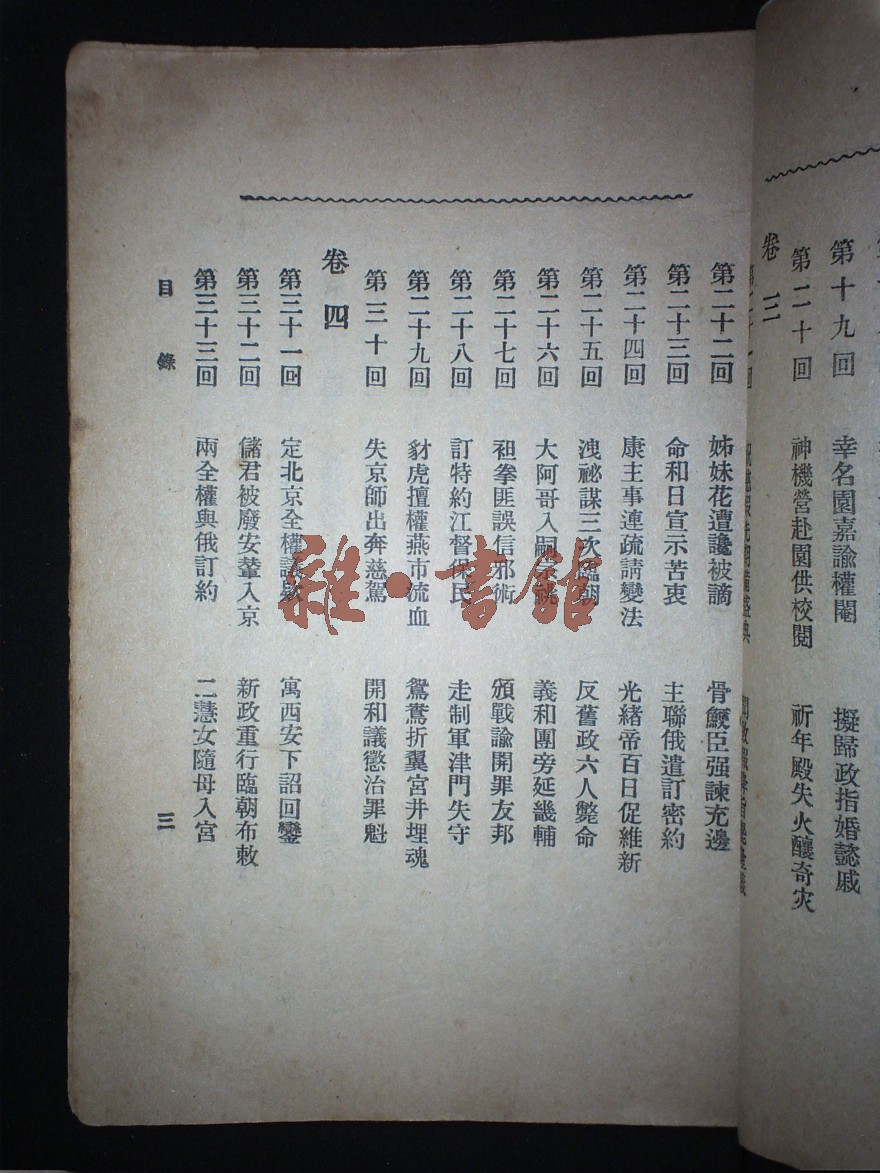 第十九回 幸名園嘉諭權閹 擬歸政指婚懿戚
第二十回 神機營赴園供校閱 祈年殿失火釀奇灾
卷三
第二十二回 姊妹花遭讒被謫 骨鯁臣强諫充邊
第二十三回 命和日宣示苦衷 主聯俄遣訂密約
第二十四回 康主事連疏請變法 光緒帝百日促維新
第二十五回 洩祕謀三次臨朝 反舊政六人斃命
第二十六回 大阿哥入嗣宗祧 義和團旁延畿輔
第二十七回 袒拳匪誤信邪術 頒戰諭開罪友邦
第二十八回 訂特約江督保民 走制軍津門失守
第二十九回 豺虎擅權燕市流血 鴛鴦折翼宮井埋魂
第三十回 失京師出奔慈駕 開和議懲治罪魁
卷四
第三十一回 定北京全權議款 寓西安下詔回鑾
第三十二回 儲君被廢安輦入京 新政重行臨朝布敕
第三十三回 兩全權與俄訂約 二慧女隨母入宮
目錄 三
雜·書館